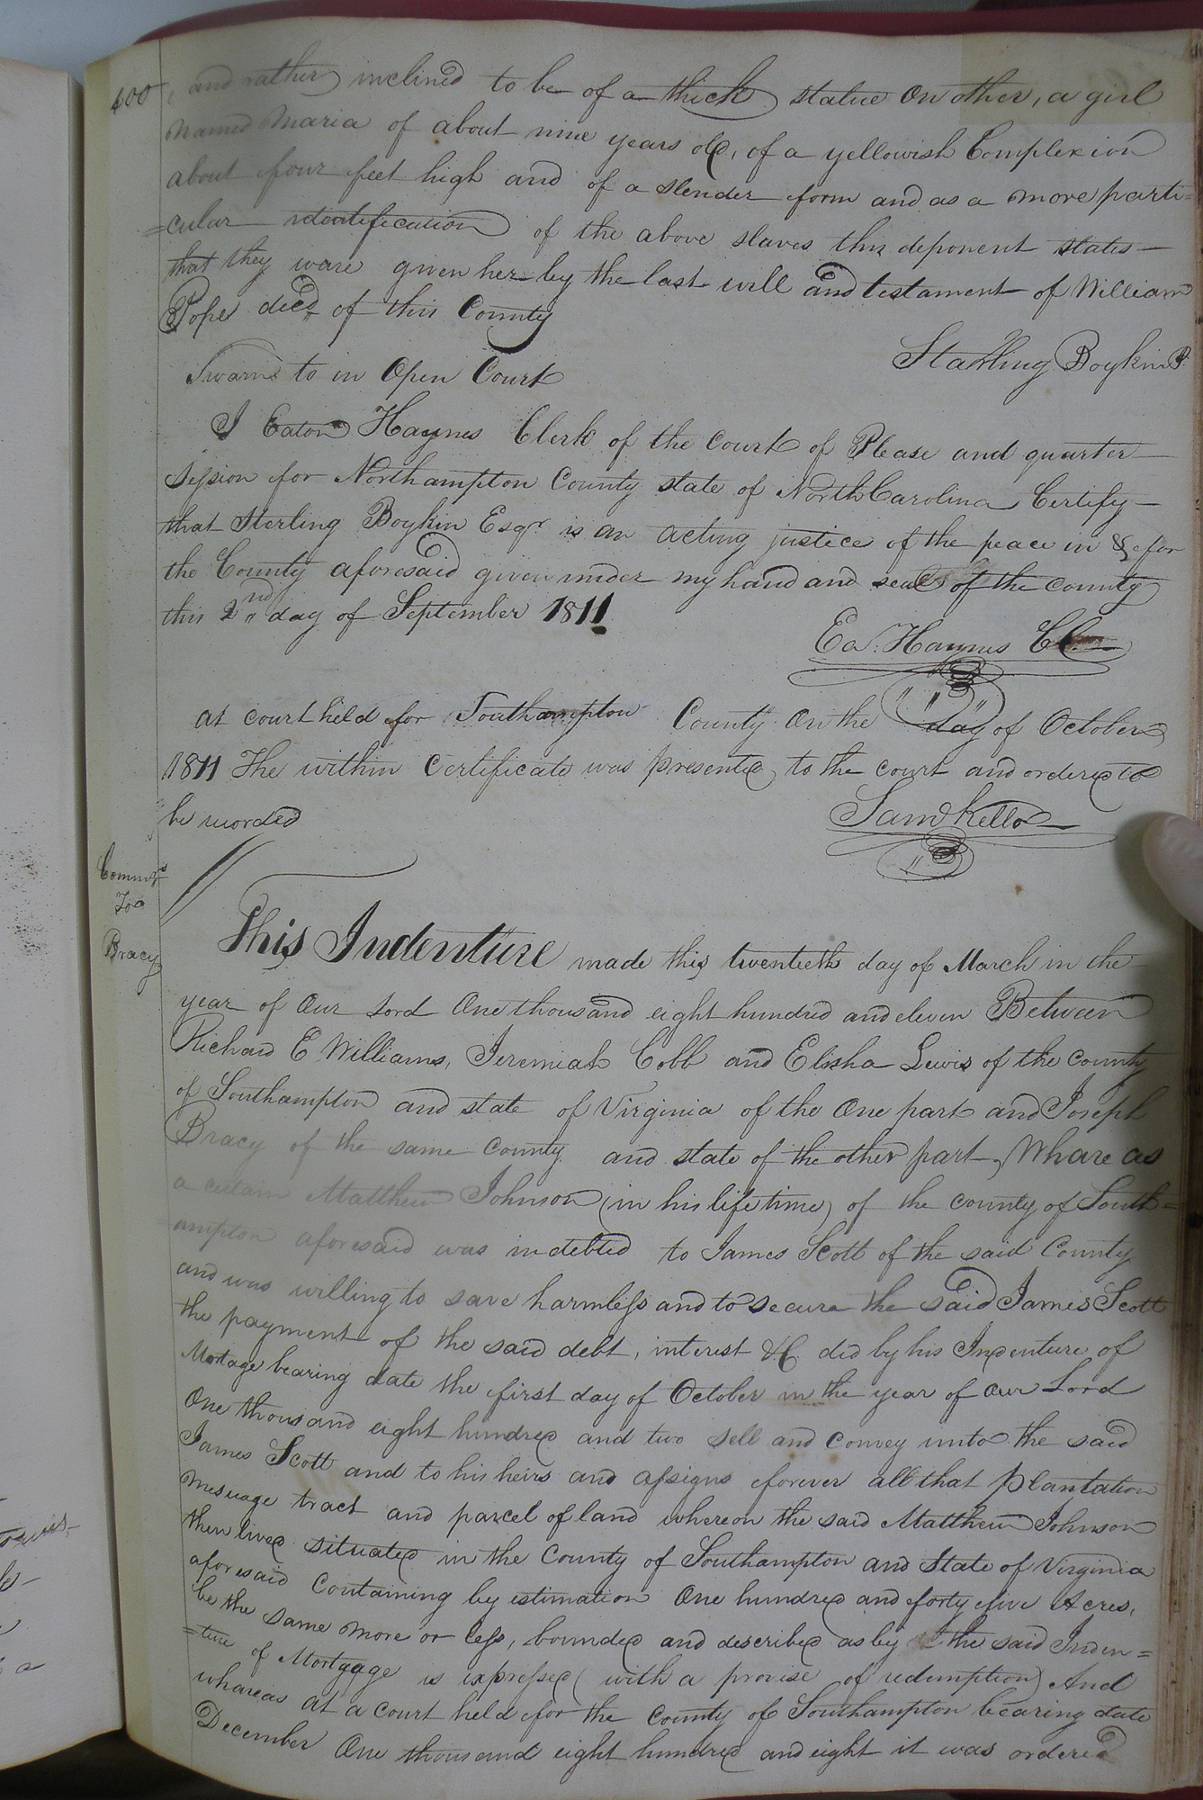 400
, and rather inclined to be of a thick statue on other, a girl
named Maria of about nine years old, of a yellowish Complexion
about four feet high and of a slender form and as a more parti=
=cular identification of the above slaves this deponent states
that they ware given her by the last will and testament of William
Pope decd of this County
Starling Boykin
Swarn to in Open Court
I Eaton Haynes Clerk of the Court of Please and quarter
session for Northampton County state of North Carolina Certify
that Sterling Boykin Esqr is an acting justice of the peace in & for
the County aforesaid given under my hand and seal of the county
this 2nd day of September 1811
Ea. Haynes CC
At court held for Southampton County on the day of October
1811 The within Certificate was presented to the court and ordered to
be recorded
Saml Kello
Commrs
To
Bracy
This Indenture made this twentieth day of March in the
year of Our Lord One thousand eight hundred and eleven Between
Richard E Williams, Jeremiah Cobb and Elisha Lewis of the county
of Southampton and state of Virginia of the One part and Joseph
Bracy of the same county and state of the other part, Whare as
a certain Matthew Johnson (in his life time) of the county of South=
=ampton aforesaid was indebted to James Scott of the said County
and was willing to save harmless and to secure the said James Scott
the payment of the said debt, interest &C did by his Indenture of
Mortage bearing date the first day of October in the year of our Lord
One thousand eight hundred and two sell and convey unto the said
James Scott and to his heirs and assigns forever all that plantation
mesuage tract and parcel of land whereon the said Matthew Johnson
then lived situated in the County of Southampton and State of Virginia
aforesaid Containing by estimation One hundred and forty five Acres,
be the same more or less, bounded and described as by the said Inden=
=ture of Mortgage is expressed (with a provise of redemption) And
whareas at a court held for the County of Southampton bearing date
December One thousand eight hundred and eight it was ordered